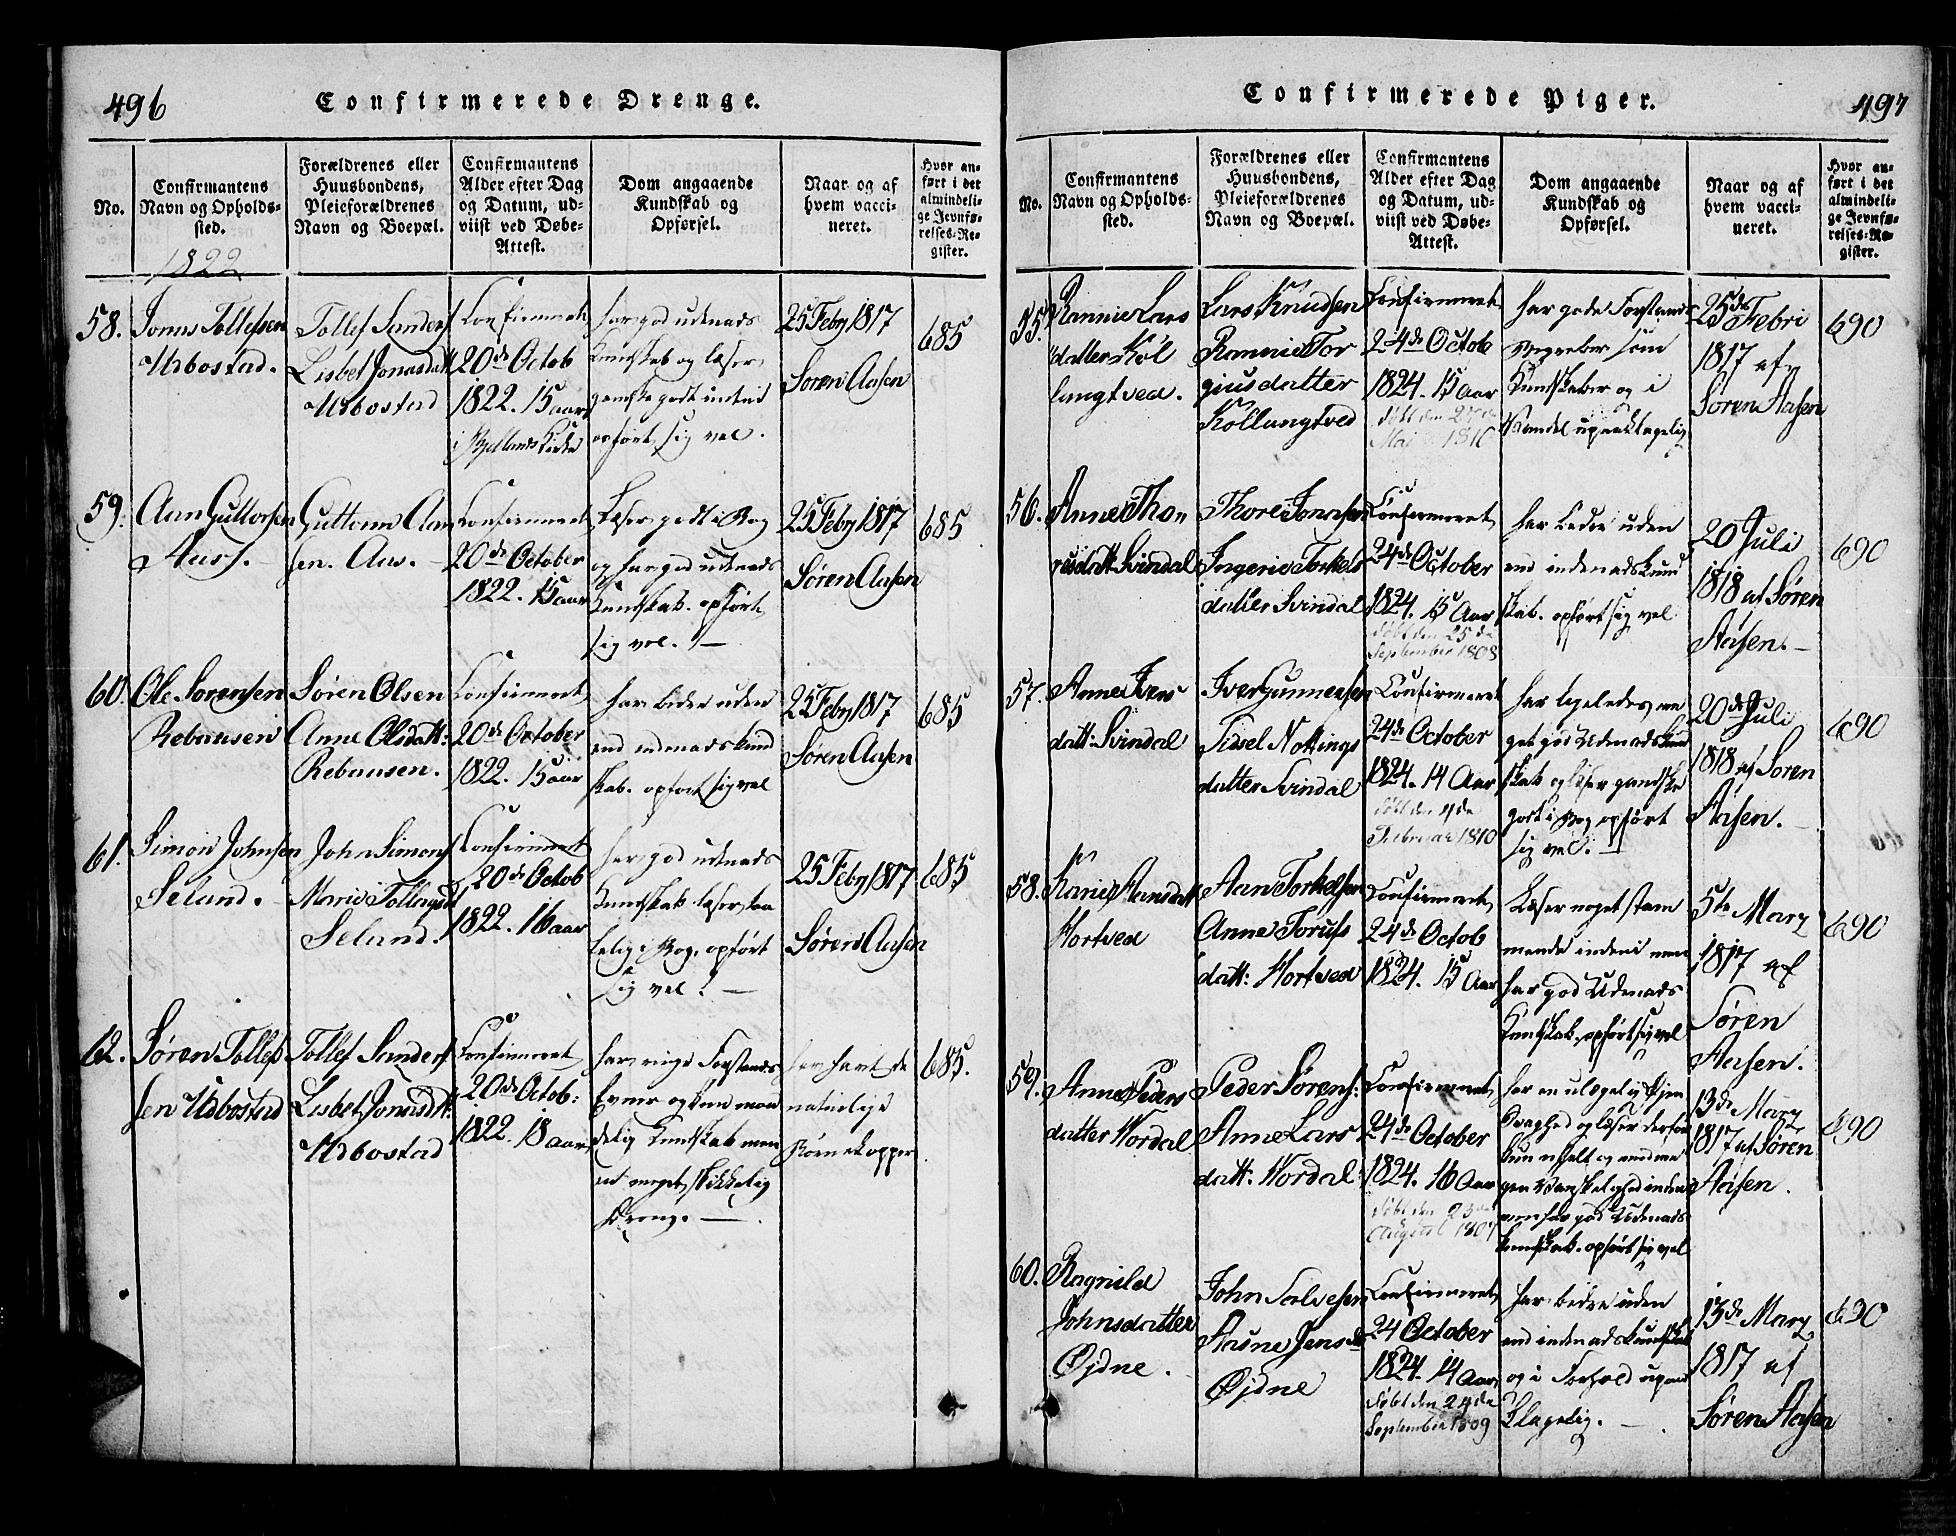 496
Confirmerede Drenge.
No.
Confirmantens
Navn og Opholds-
sted.
Forældrenes eller
Huusbondens,
Pleieforældrenes
Navn og Boepæl.
Confirmantens
Alder efter Dag
og Datum, ud-
viist ved Døbe-
Attest.
Dom angaaende
Kundskab og
Opførsel.
Naar og af
hvem vacci-
neret.
Hvor an-
ført i det
almindeli-
ge Jevnfø-
relses-Re-
gister.
1822
58.
Jonas Tollefsen
Udbostad.
Tollef Sanders
Lisbet Jonasdatt
Udbostad
Confirmeret
20de Octob
1822. 15 aar
har god udenads
Kundskab og læser
ganske godt inden
opført sig vel.
25 Feby 1817
Søren Aasen
685
59.
Aan Guttorsen
Aas.
Guttorm Aan
sen. Aas.
Confirmeret
20de October
1822. 15 aar
Læser godt i Bog
og har god udenads
Kundskab. opført
sig vel. —
25 Feby 1817
Søren Aasen
685
60.
Ole Sørensen
Rebausen
Søren Olsen
Anne Olsdatt:
Rebausen.
Confirmeret
20de October
1822. 15 aar
har bedre uden
end indenadskund
skab. opført sig vel
25 Feby 1817
Søren Aasen
685
61.
Simon Johnsen
Seland.
John Simons
Marie Tollagsd
Seland.
Confirmeret
20de Octob
1822. 16 aar
har god udenads
Kundskab læser taa
lelig i Bog, opført
sig vel. —
25 Feby 1817
Søren Aasen
685
62.
Søren Tollef
sen Udbostad
Tollef Sanders
Lisbet Jonasdt:
Udbostad
Confirmeret
20de Octob:
1822. 18 aar
har ringe Forstands
Evner og kun maa
delig Kundskab men
er meget skikkelig
Dreng. —
har havt de
naturlige
Børnekopper
685.
497
Confirmerede Piger.
No.
Confirmantens
Navn og Opholds-
sted.
Forældrenes eller
Huusbondens,
Pleieforældrenes
Navn og Boepæl.
Confirmantens
Alder efter Dag
og Datum, ud-
viist ved Døbe-
Attest.
Dom angaaende
Kundskab og
Opførsel.
Naar og af
hvem vacci-
neret.
Hvor an-
ført i det
almindeli-
ge Jevnfø-
relses-Re-
gister.
55.
Rannie Lars
datter Kol
langtved.
Lars Knudsen
Rannie Tor
giusdatter
Kollangtved
Confirmeret
24de Octob
1824. 15 Aar
født den
Mai 1810
har gode Forstands
Begreber som
Kundskaber og i
Vandel upaaklagelig
25de Febri
1817 af
Søren Aasen
690
56.
Anne Tho
resdatt Svindal
Thore Jonasen
Ingerie Torkels
datter Svindal
Confirmeret
24de October
1824. 15 Aar
født den 25de
September 1808
har bedre uden
end indenadskund
skab. opført sig vel
20 Juli
1818 af Søren
Aasen. —
690
57.
Anne Ivers
datt: Svindal
Iver Gunnersen
Sidsel Nottings
datter Svindal
Confirmeret
24de October
1824. 14 Aar
født den 4de
Februar 1810
har ligeledes me
get god Udenadskund
skab og læser gandske
godt i Bog opført
sig vel. —
20de Juli
1818 af Søren
Aasen.
690
58.
Karie Aansdatt
Hortved
Aan Torkelsen
Anne Torufs
datt: Hortved
Confirmeret
24de Octob
1824. 15 Aar
Læser noget stam
mende indeni men
har god Udenads
Kundskab. opført sig vel
5te Marz
1817 af
Søren
Aasen.
690
59.
Anne Peders
datter Nordal
Peder Sørens:
Anne Lars
datt: Nordal
Confirmeret
24de October
1824. 16 Aar
født den 23de
August 1807
har en ulægelig Øjen
Svaghed og læser derfor
kun uselt og med me
gen Vanskelighed inden
men har god Udenads
Kundskab. opført sig vel
13de Marz
1817 af Søren
Aasen.
690
60.
Ragnild
Johnsdatter
Øjdne.
John Salvesen
Aasne Jensd
Øjdne
Confirmeret
24 October
1824. 14 Aar
født den 24de
September 1809
har bedre uden
end indenadskundskab
og i Forhold upaa
klagelig. —
13de Marz
1817 af
Søren Aasen
690